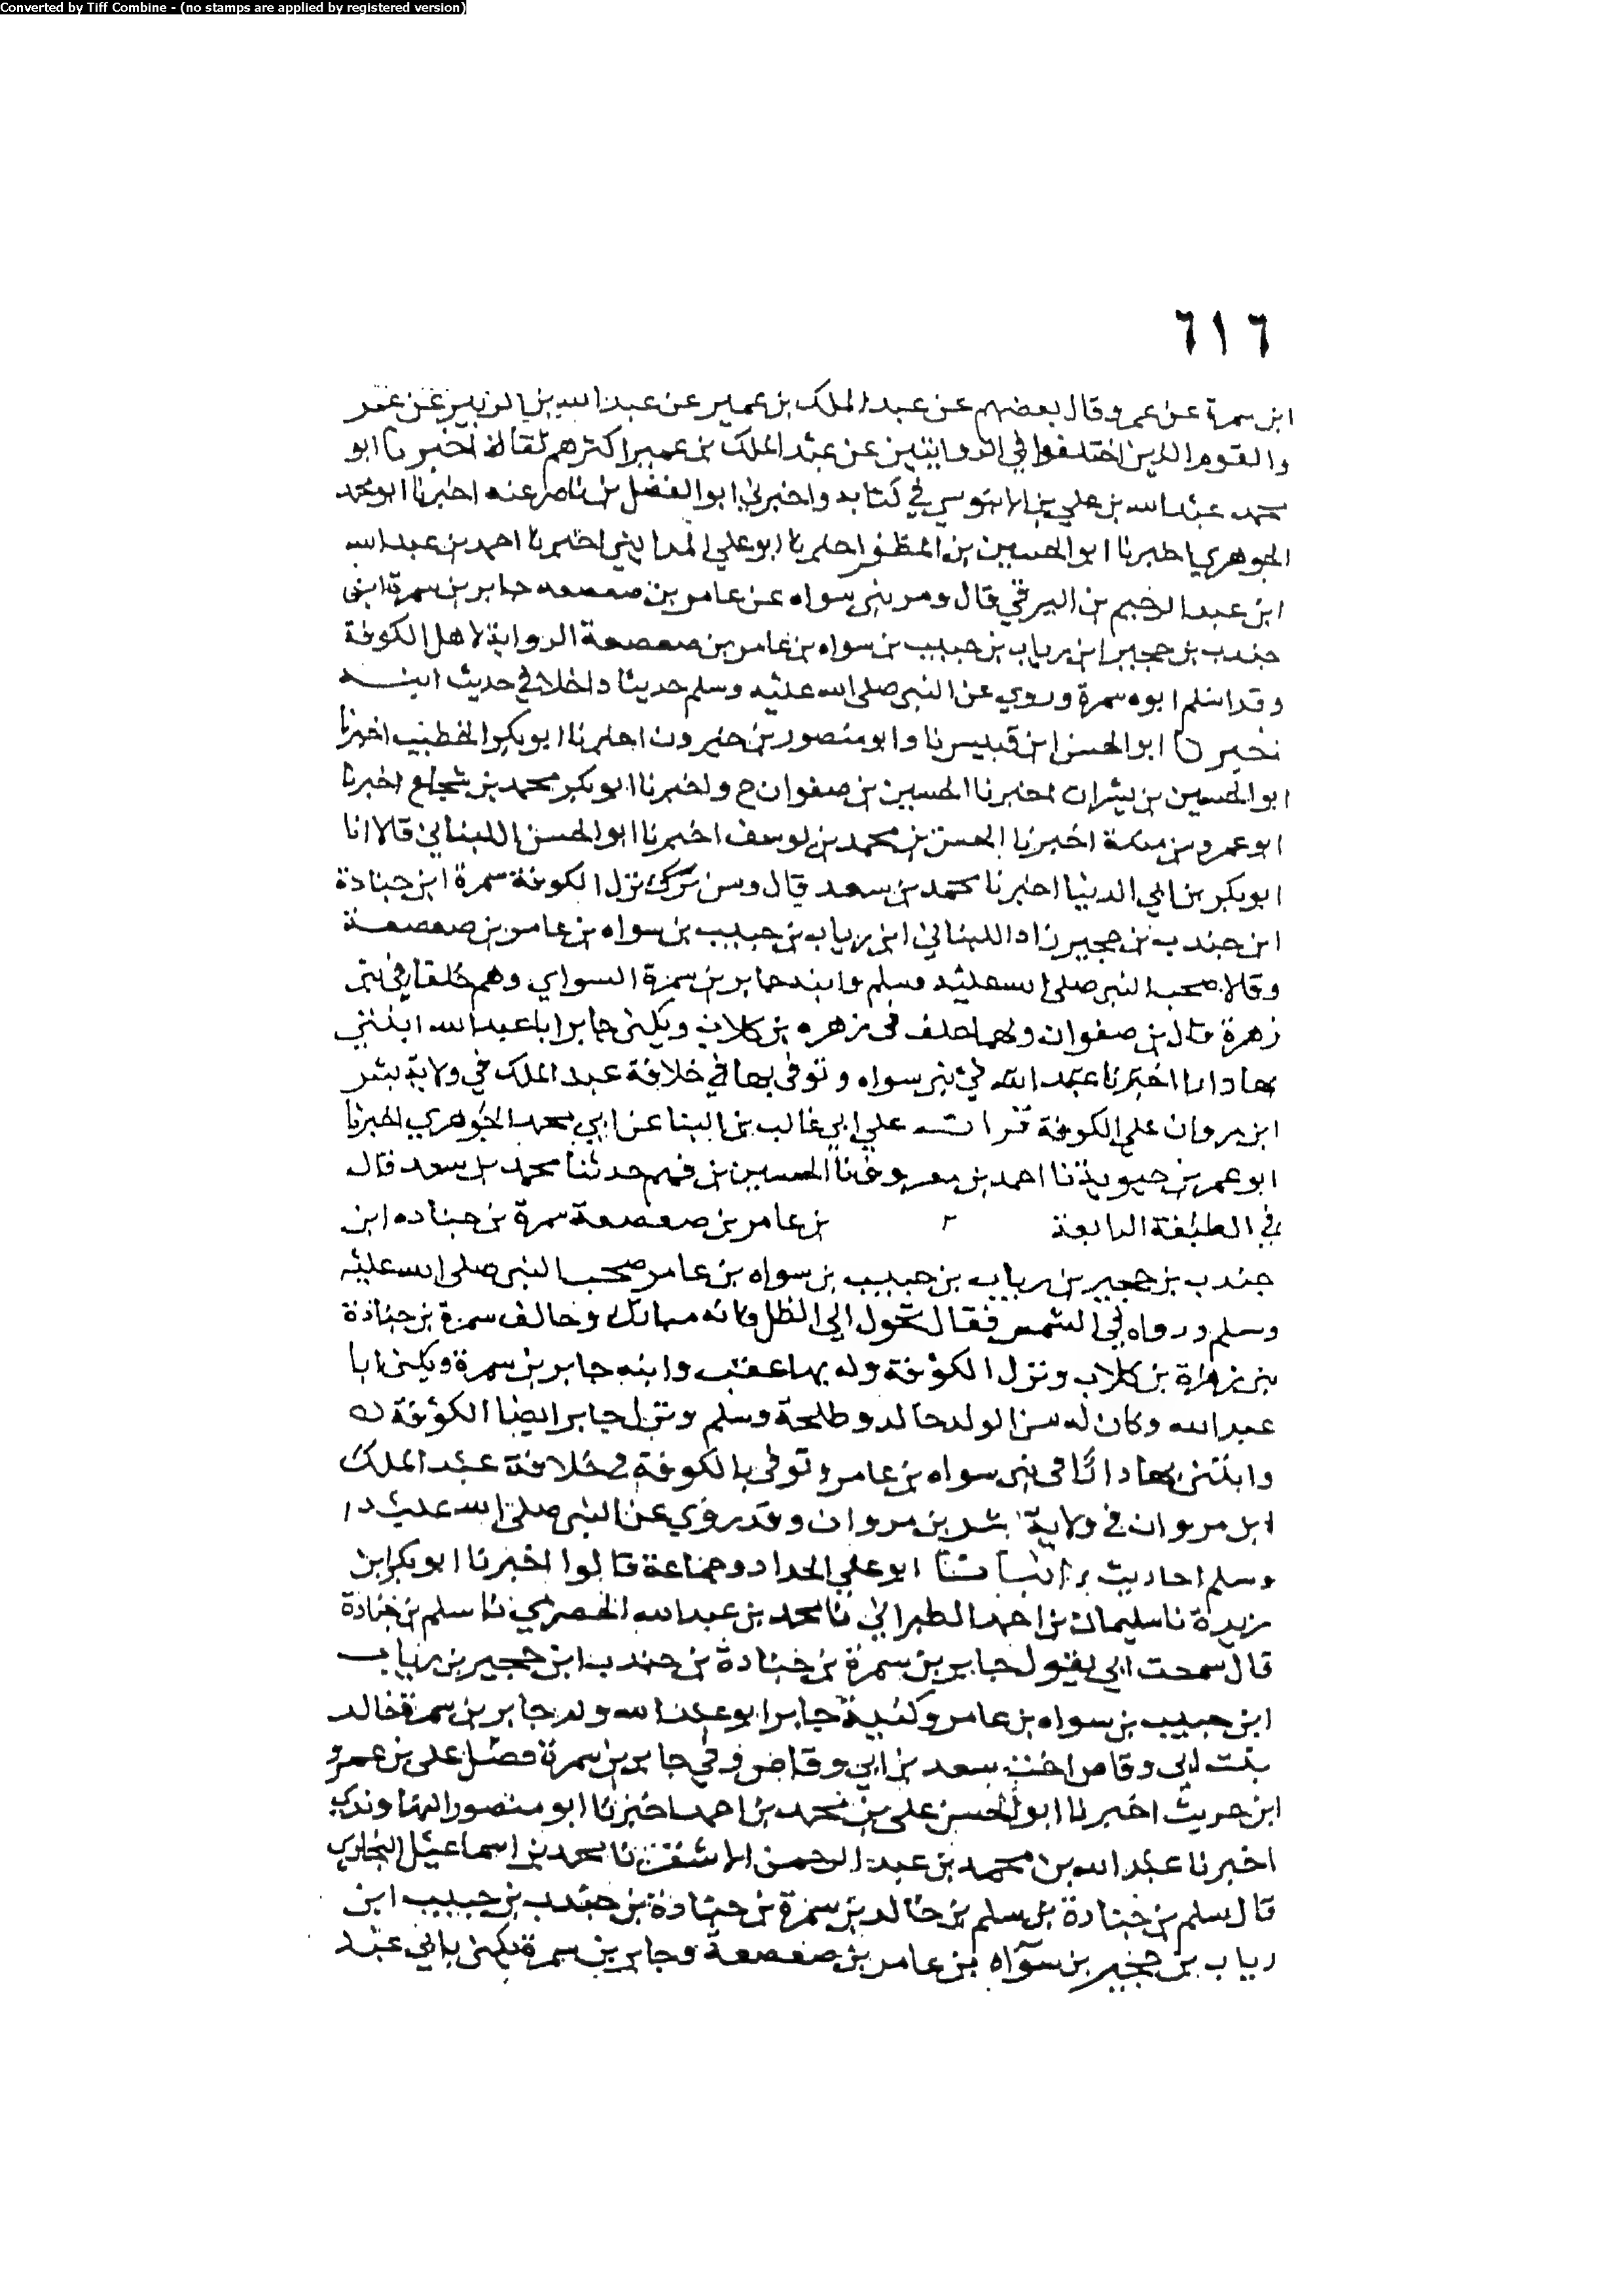 Converted by Tiff Combine - (no stamps are applied by registered version)
٦١٦
ابن سمرة عن عمر وقال بعضهم عن عبد الملك بن عمير عن عبد الله بن الزبير عن عمر
والقوم الذين اختلفوا في الروايتين عن عبد الملك بن عمير اكثرهم ثقات اخبرنا ابو
محمد عبد الله بن علي بن الابنوسي في كتابه واخبرني ابو الفضل بن ناصر عنه اخبرنا ابو محمد
الجوهري اخبرنا ابو الحسين بن المظفر اخبرنا ابو علي المدايني اخبرنا احمد بن عبد الله
ابن عبد الرحيم بن البرقي قال ومن بني سواه عن عامر بن صعصعه جابر بن سمرة ابن
جندب بن حجير ابن رياب بن حبيب بن سواه بن عامر بن صعصعة الرواية لاهل الكوفة
وقد اسلم ابوه سمرة وروي عن النبي صلى الله عليه وسلم حديثا داخلا في حديث ابنه
اخبرنا ابو الحسن ابن قبيس نا وابو منصور بن خيرون اخبرنا ابو بكر الخطيب اخبرنا
ابو الحسين بن بشران اخبرنا الحسين بن صفوان ح واخبرنا ابو بكر محمد بن شجاع اخبرنا
ابو عمرو بن مندة اخبرنا الحسن بن محمد بن يوسف اخبرنا ابو الحسن اللبناني قالا انا
ابو بكر بن ابي الدنيا اخبرنا محمد بن سعد قال نزل الكوفة سمرة ابن جنادة
ابن جندب بن حجير زاد اللبناني ابن رياب بن حبيب بن سواه بن عامر بن صعصعة
وقالا صحب النبي صلى الله عليه وسلم وابنه جابر بن سمرة السواي وهم حلفا في بني
زهرة قال بن صفوان ولهما حلف في زهره بن كلاب ويكنى جابر ابا عبد الله ابتنى
بها دارا اخبرنا عبد الله في بني سواه وتوفى بها في خلافة عبد الملك في ولاية بشر
ابن مروان على الكوفة قرات على ابي غالب بن البنا عن ابي محمد الجوهري اخبرنا
ابو عمر بن حيويه نا احمد بن معروف نا الحسين بن فهم حدثنا محمد بن سعد قال
في الطبقة الرابعة بن عامر بن صعصعة سمرة بن جناده ابن
جندب بن حجير بن رياب بن حبيب بن سواه بن عامر صحب النبي صلى الله عليه
وسلم ورواه في الشمس فقال تحول الى الظل فانه مبارك وحالف سمرة بن جنادة
بني زهرة بن كلاب ونزل الكوفة وله بها عقب وابنه جابر بن سمرة ويكنى ابا
عبد الله وكان له من الولد خالد وطلحة وسلم ونزل جابر ايضا الكوفة
وابتنى بها دارا في بني سواه بن عامر وتوفى بالكوفة في خلافة عبد الملك
ابن مروان في ولاية بشر بن مروان وقد روي عن النبي صلى الله عليه
وسلم احاديث انبانا ابو علي الحداد وجماعة قالوا اخبرنا ابو بكر ابن
ريدة نا سليمان بن احمد الطبراني نا محمد بن عبد الله الحضرمي نا سلم بن جنادة
قال سمعت ابي يقول جابر بن سمرة بن جنادة بن جندب ابن حجير بن رياب
ابن حبيب بن سواه بن عامر وكنية جابر ابو عبد الله ولد جابر بن سمرة خالد
بنت ابي وقاص اخت سعد بن ابي وقاص وفي جابر بن سمرة فصل على بن عمرو
ابن حريث اخبرنا ابو الحسن علي بن محمد بن احمد اخبرنا ابو منصور النهاوندي
اخبرنا عبد الله بن محمد بن عبد الرحمن الاشقر نا محمد بن اسماعيل البخاري
قال سلم بن جنادة بن سلم بن خالد بن سمرة بن جنادة بن جندب بن حبيب ابن
رياب بن حجير بن سواه بن عامر بن صعصعة وجابر بن سمرة يكنى بابي عبد